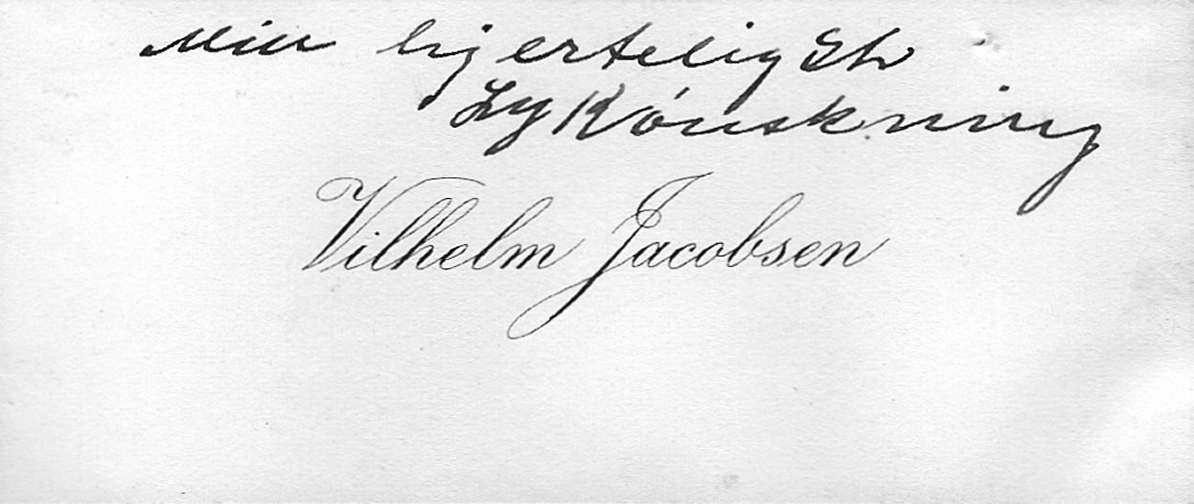 Min hjerteligste
Lykónskning
Vilhelm Jacobsen